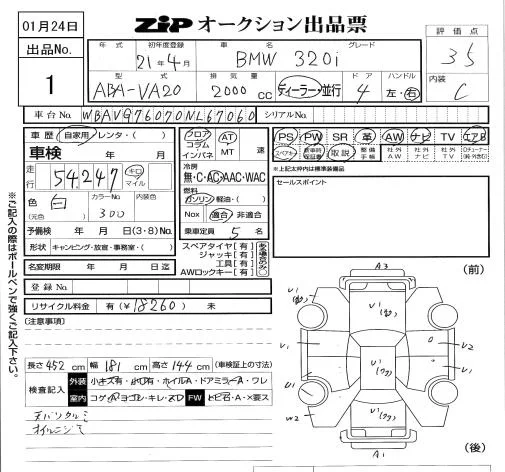 01月24日
ZIP オークション出品票
出品No.
1
年 式
初年度登録
21年4月
車 名
BMW 320i
グレード
型 式
ABA-VA20
排 気 量
2000 CC
ディーラー・並行
ド ア
4
ハンドル
左・右
評 価 点
3.5
内装
C
車 台 No.
WBAVG76070NL67060
シリアルNo.
車 歴 自家用 レンタ・( )
車検 年 月
走行 54.247 キロ マイル
色 白 (元色)
カラーNo. 300
内装色
予備検 年 月 日(3・8)No.
形状 キャンピング・放宣・事務室・( )
名変期限 年 月 日迄
登 録 No.
リサイクル料金 有(¥18260) 未
フロア コラム インパネ
AT MT 速
冷房
無・C・AC・AAC・WAC
燃料
ガソリン・軽油・( )
Nox 適合・非適合
乗車定員 5 名
スペアタイヤ【有】
ジャッキ【有】
工具【有】
AWロックキー【有】
PS PW SR 革 AW ナビ TV エアB
スペアキー 新車時保証書 取説 整備手帳 社外AW 社外ナビ 社外TV
※上記太枠内は標準装備品
セールスポイント
(注意事項)
長さ 452 cm 幅 181 cm 高さ 144 cm (車検証上の寸法)
検査記入
外装 小キズ有・小凹有・ホイルA・ドアミラーA・ワレ
室内 コゲ・ヨゴレ・キレ・スレ FW トビ石・A・×要ス
オイルニジミ
※ご記入の際はボールペンで強くご記入下さい。
(前)
A3
U1
U1
U1
U2
U1
U1
U1
W2
U1
A1
(後)